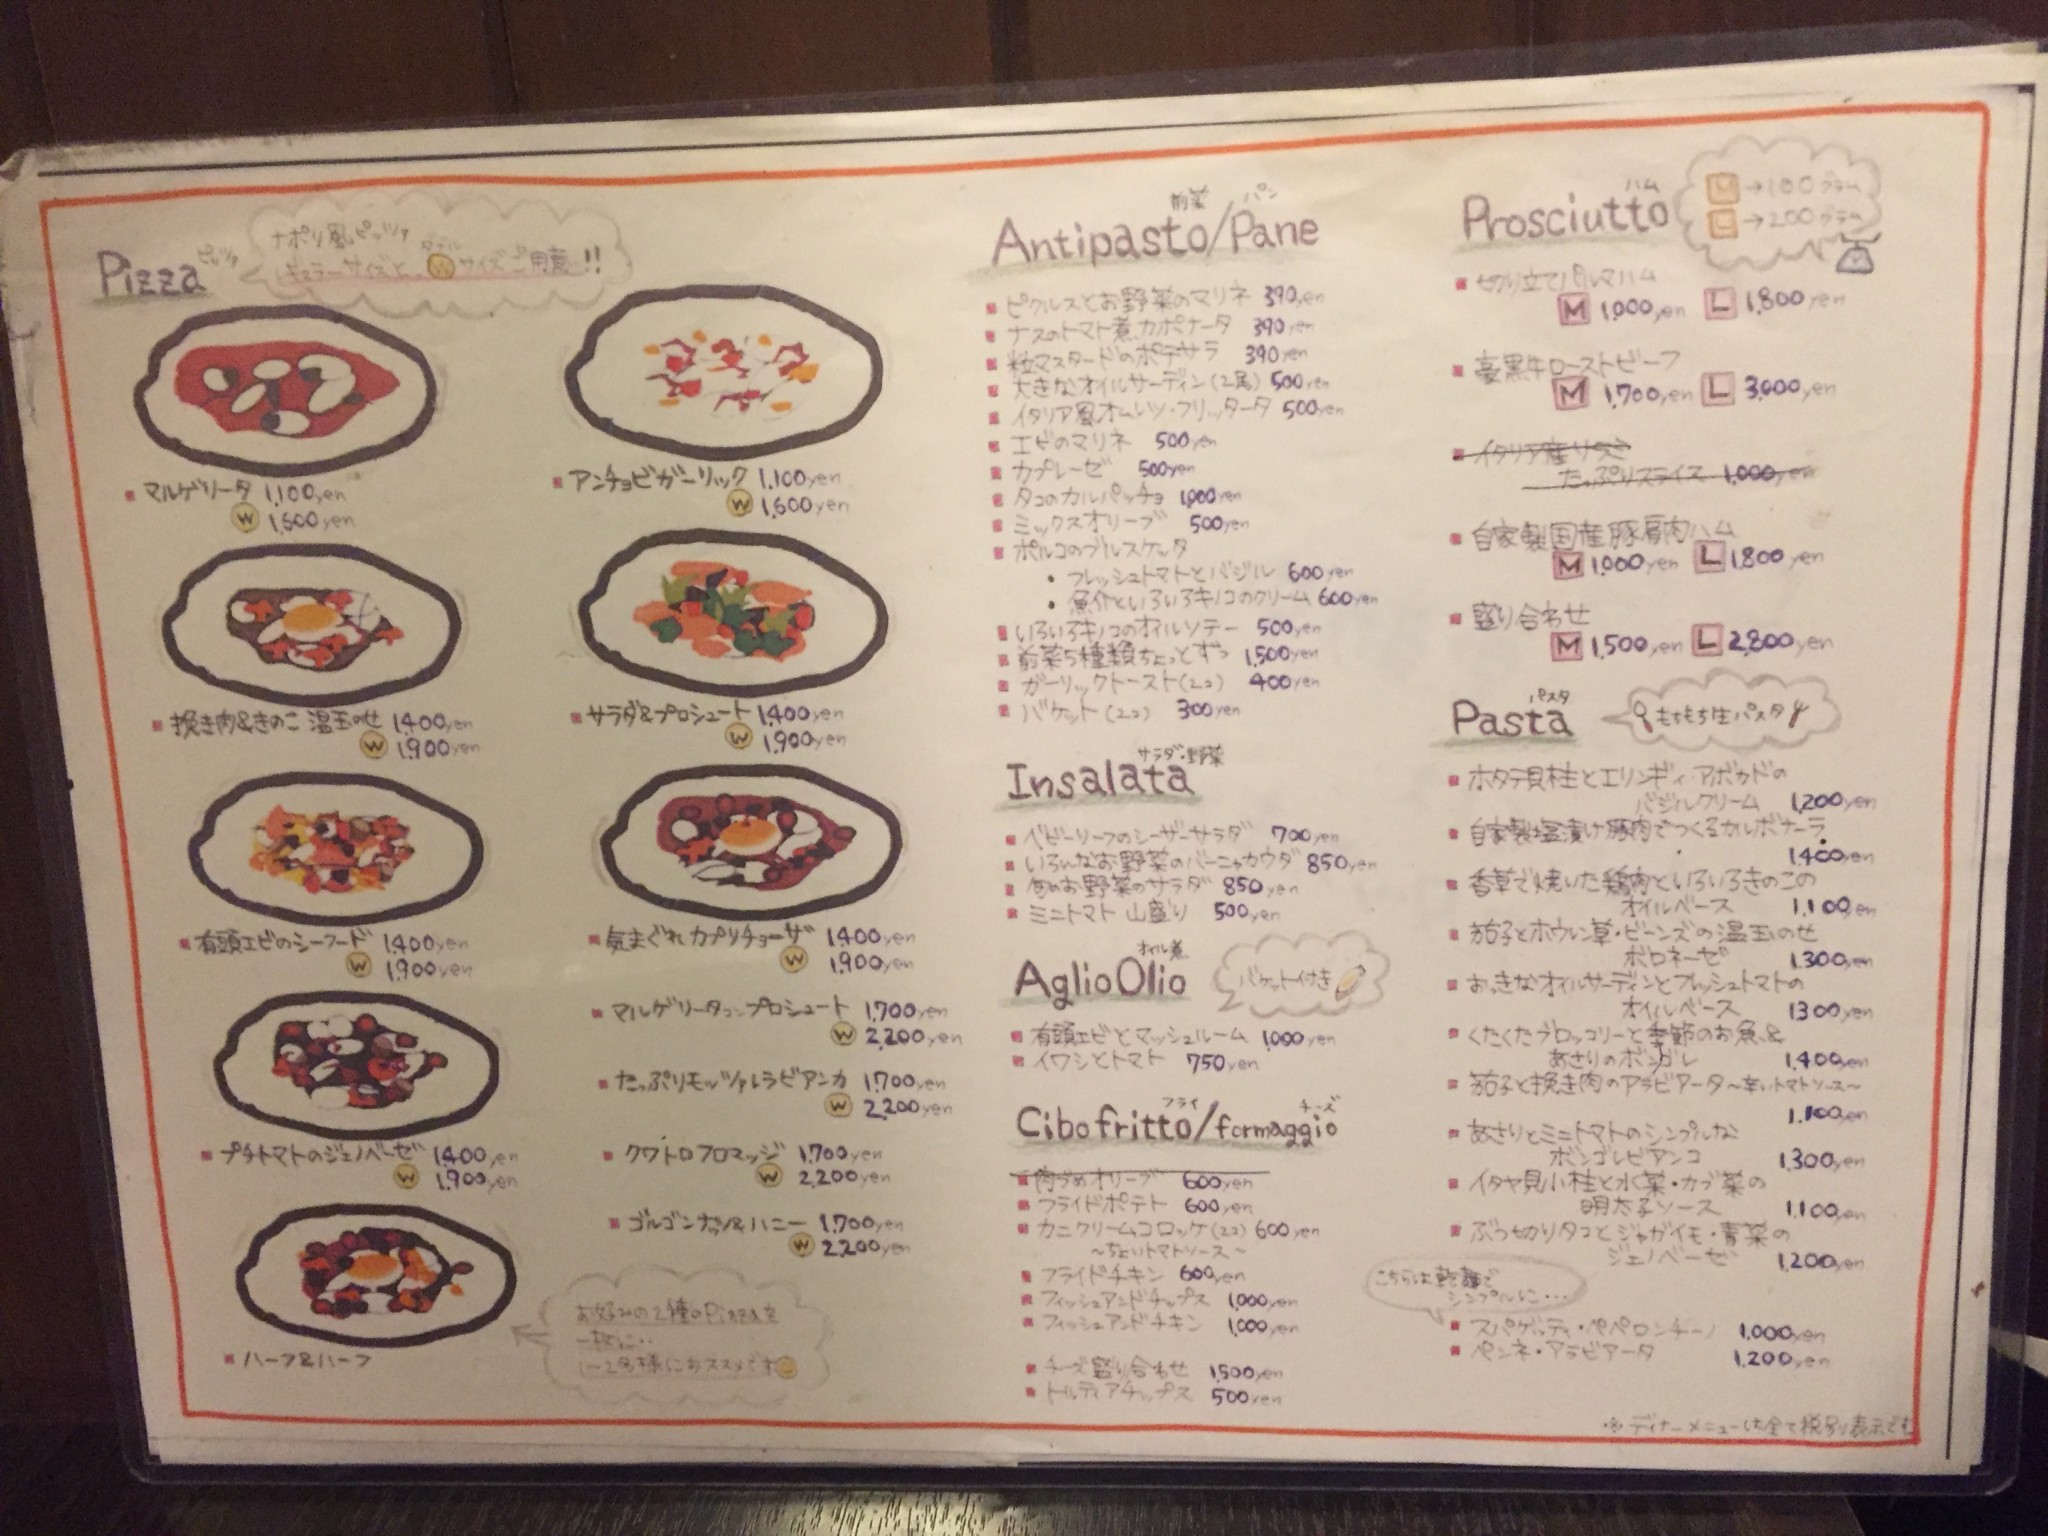 Pizza
ピッツァ
ナポリ風ピッツァ
レギュラーサイズと、Wサイズご用意!!
ダブル
マルゲリータ 1,100yen
W 1,600yen
アンチョビガーリック 1,100yen
W 1,600yen
挽き肉&きのこ 温玉のせ 1,400yen
W 1,900yen
サラダ&プロシュート 1,400yen
W 1,900yen
有頭エビのシーフード 1,400yen
W 1,900yen
気まぐれカプリチョーザ 1,400yen
W 1,900yen
プチトマトのジェノベーゼ 1,400yen
W 1,900yen
ハーフ&ハーフ
マルゲリータコンプロシュート 1,700yen
W 2,200yen
たっぷりモッツァレラビアンカ 1,700yen
W 2,200yen
クワトロフロマッジ 1,700yen
W 2,200yen
ゴルゴンナッツ&ハニー 1,700yen
W 2,200yen
お好みの2種のPizzaを
一枚に..
1~2名様におススメです
前菜 パン
Antipasto/Pane
ピクルスとお野菜のマリネ 390yen
ナスのトマト煮カポナータ 390yen
粒マスタードのポテサラ 390yen
大きなオイルサーディン(2尾) 500yen
イタリア風オムレツ・フリッタータ 500yen
エビのマリネ 500yen
カプレーゼ 500yen
タコのカルパッチョ 1,000yen
ミックスオリーブ 500yen
ポルコのブルスケッタ
・フレッシュトマトとバジル 600yen
・魚介といろいろキノコのクリーム 600yen
いろいろキノコのオイルソテー 500yen
前菜5種類ちょっとずつ 1,500yen
ガーリックトースト(2コ) 400yen
バケット(2コ) 300yen
サラダ・野菜
Insalata
ベビーリーフのシーザーサラダ 700yen
いろんなお野菜のバーニャカウダ 850yen
旬のお野菜のサラダ 850yen
ミニトマト 山盛り 500yen
オイル煮
AglioOlio
バケット付き
有頭エビとマッシュルーム 1,000yen
イワシとトマト 750yen
フライ チーズ
Cibofritto/formaggio
肉づめオリーブ 600yen
フライドポテト 600yen
カニクリームコロッケ(2コ) 600yen
~ちょいトマトソース~
フライドチキン 600yen
フィッシュアンドチップス 1,000yen
フィッシュアンドチキン 1,000yen
チーズ盛り合わせ 1,500yen
トルティアチップス 500yen
ハム
Prosciutto
M→100グラム
L→200グラム
切り立てパルマハム
M 1,000yen L 1,800yen
豪黒牛ローストビーフ
M 1,700yen L 3,000yen
たっぷりスライス 1,000yen
自家製国産豚肩肉ハム
M 1,000yen L 1,800yen
盛り合わせ
M 1,500yen L 2,800yen
パスタ
Pasta
もちもち生パスタ
ホタテ貝柱とエリンギィ・アボカドの
バジルクリーム 1,200yen
自家製塩漬け豚肉でつくるカルボナーラ
1,400yen
香草で焼いた鶏肉といろいろきのこの
オイルベース 1,100yen
茄子とホウレン草・ビーンズの温玉のせ
ボロネーゼ 1,300yen
おっきなオイルサーディンとフレッシュトマトの
オイルベース 1,300yen
くたくたブロッコリーと季節のお魚&
あさりのボンゴレ 1,400yen
茄子と挽き肉のアラビアータ~辛いトマトソース~
1,100yen
あさりとミニトマトのシンプルな
ボンゴレビアンコ 1,300yen
イタヤ貝小柱と水菜・カブ菜の
明太子ソース 1,100yen
ぶつ切りタコとジャガイモ・青菜の
ジェノベーゼ 1,200yen
こちらは乾麺で
シンプルに...
スパゲッティ・ペペロンチーノ 1,000yen
ペンネ・アラビアータ 1,200yen
※ディナーメニューは全て税別表示です